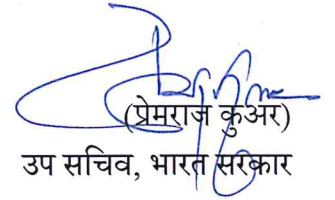 (प्रेमराज कुअर)
उप सचिव, भारत सरकार